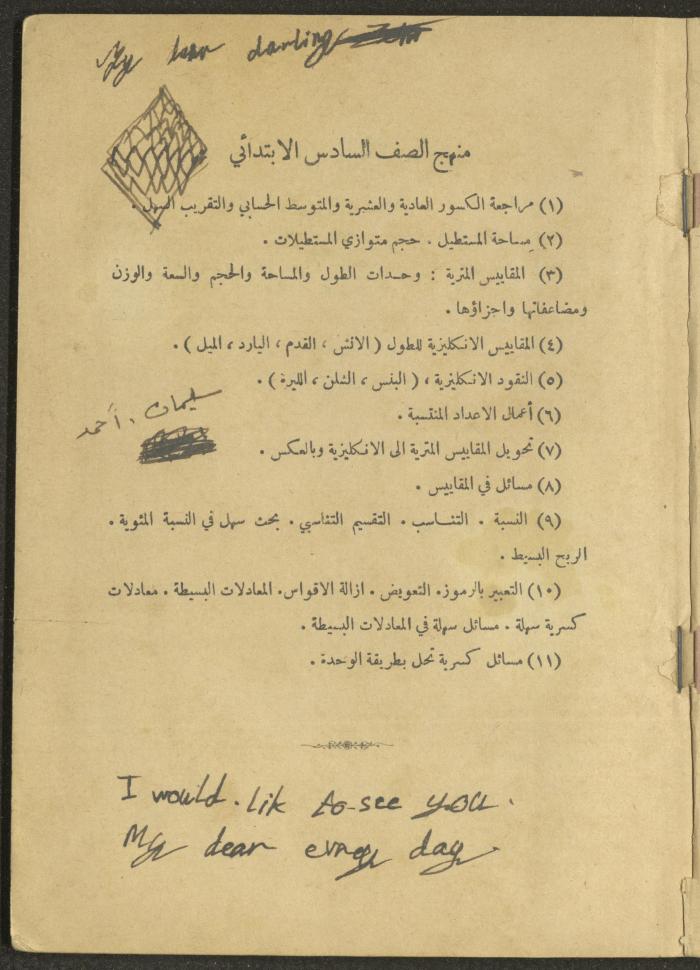 My dear darling
منهج الصف السادس الابتدائي
(١) مراجعة الكسور العادية والعشرية والمتوسط الحسابي والتقريب السهل .
(٢) مساحة المستطيل . حجم متوازي المستطيلات .
(٣) المقاييس المترية : وحدات الطول والمساحة والحجم والسعة والوزن
ومضاعفاتها واجزاؤها .
(٤) المقاييس الانكليزية للطول ( الانش ، القدم ، اليارد ، الميل ) .
(٥) النقود الانكليزية ، ( البنس ، الشلن ، الليرة ) .
سليمان . أحمد
(٦) أعمال الاعداد المنتسبة .
(٧) تحويل المقاييس المترية الى الانكليزية وبالعكس .
(٨) مسائل في المقاييس .
(٩) النسبة . التناسب . التقسيم التناسبي . بحث سهل في النسبة المئوية .
الربح البسيط .
(١٠) التعبير بالرموز . التعويض . ازالة الاقواس . المعادلات البسيطة . معادلات
كسرية سهلة . مسائل سهلة في المعادلات البسيطة .
(١١) مسائل كسرية تحل بطريقة الوحدة .
I would . lik to-see you .
My dear evrey day .